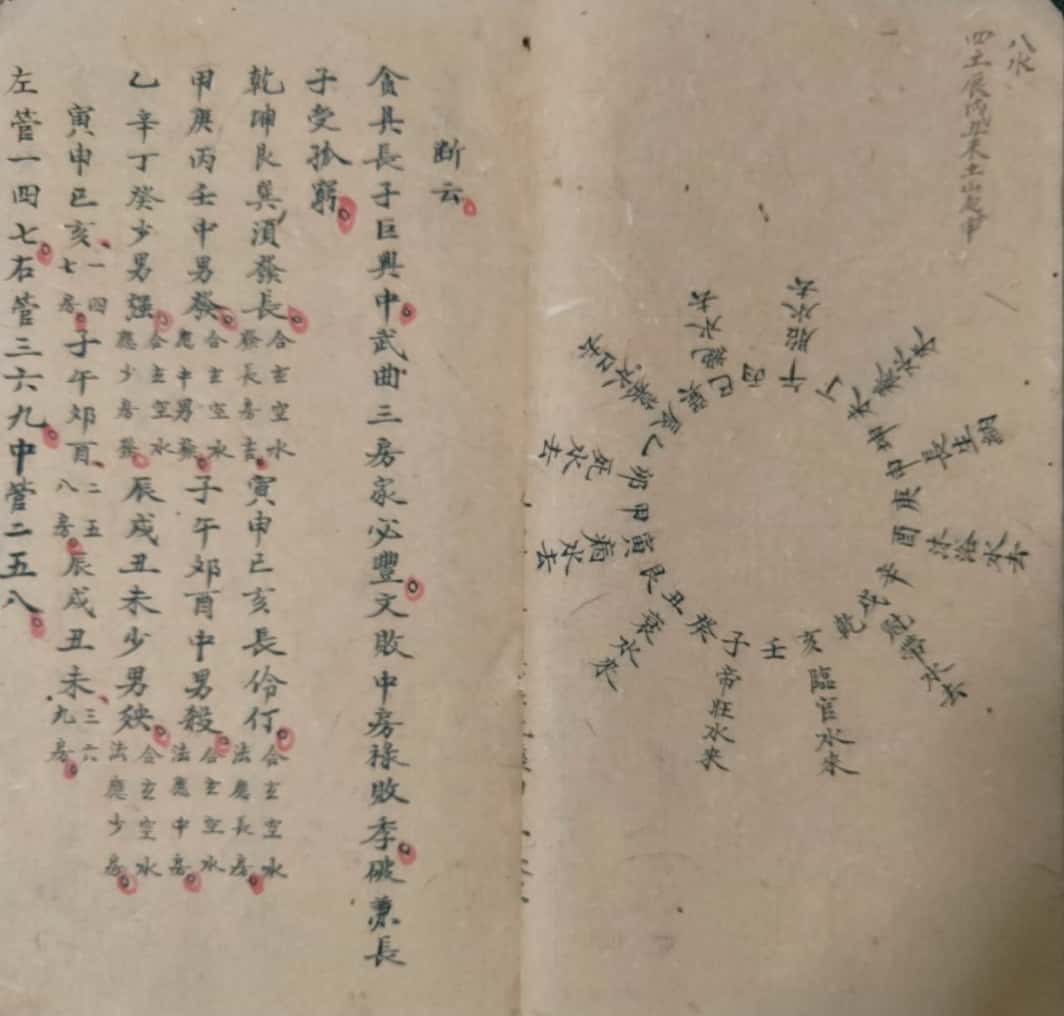 八水
四土辰戌丑未土山起申
壬
子
癸
丑
艮
寅
甲
卯
乙
辰
巽
巳
丙
午
丁
未
坤
申
庚
酉
辛
戌
乾
亥
帝旺水來
衰水來
病水去
死水去
絕水去
胎水去
長生
沐浴水
臨官水來
断云
貪具長子巨興中武曲三房家必豐文敗中房祿敗季破兼長
子受孤窮
乾坤艮巽須發長合玄空水發長房吉寅申巳亥長伶仃合玄空水法應長房
甲庚丙壬中男發合玄空水應中男發子午卯酉中男殺合玄空水法應中房
乙辛丁癸少男强合玄空水應少房發辰戌丑未少男殃合玄空水法應少房
寅申巳亥一四七房子午卯酉二五八房辰戌丑未三六九房
左管一四七右管三六九中管二五八